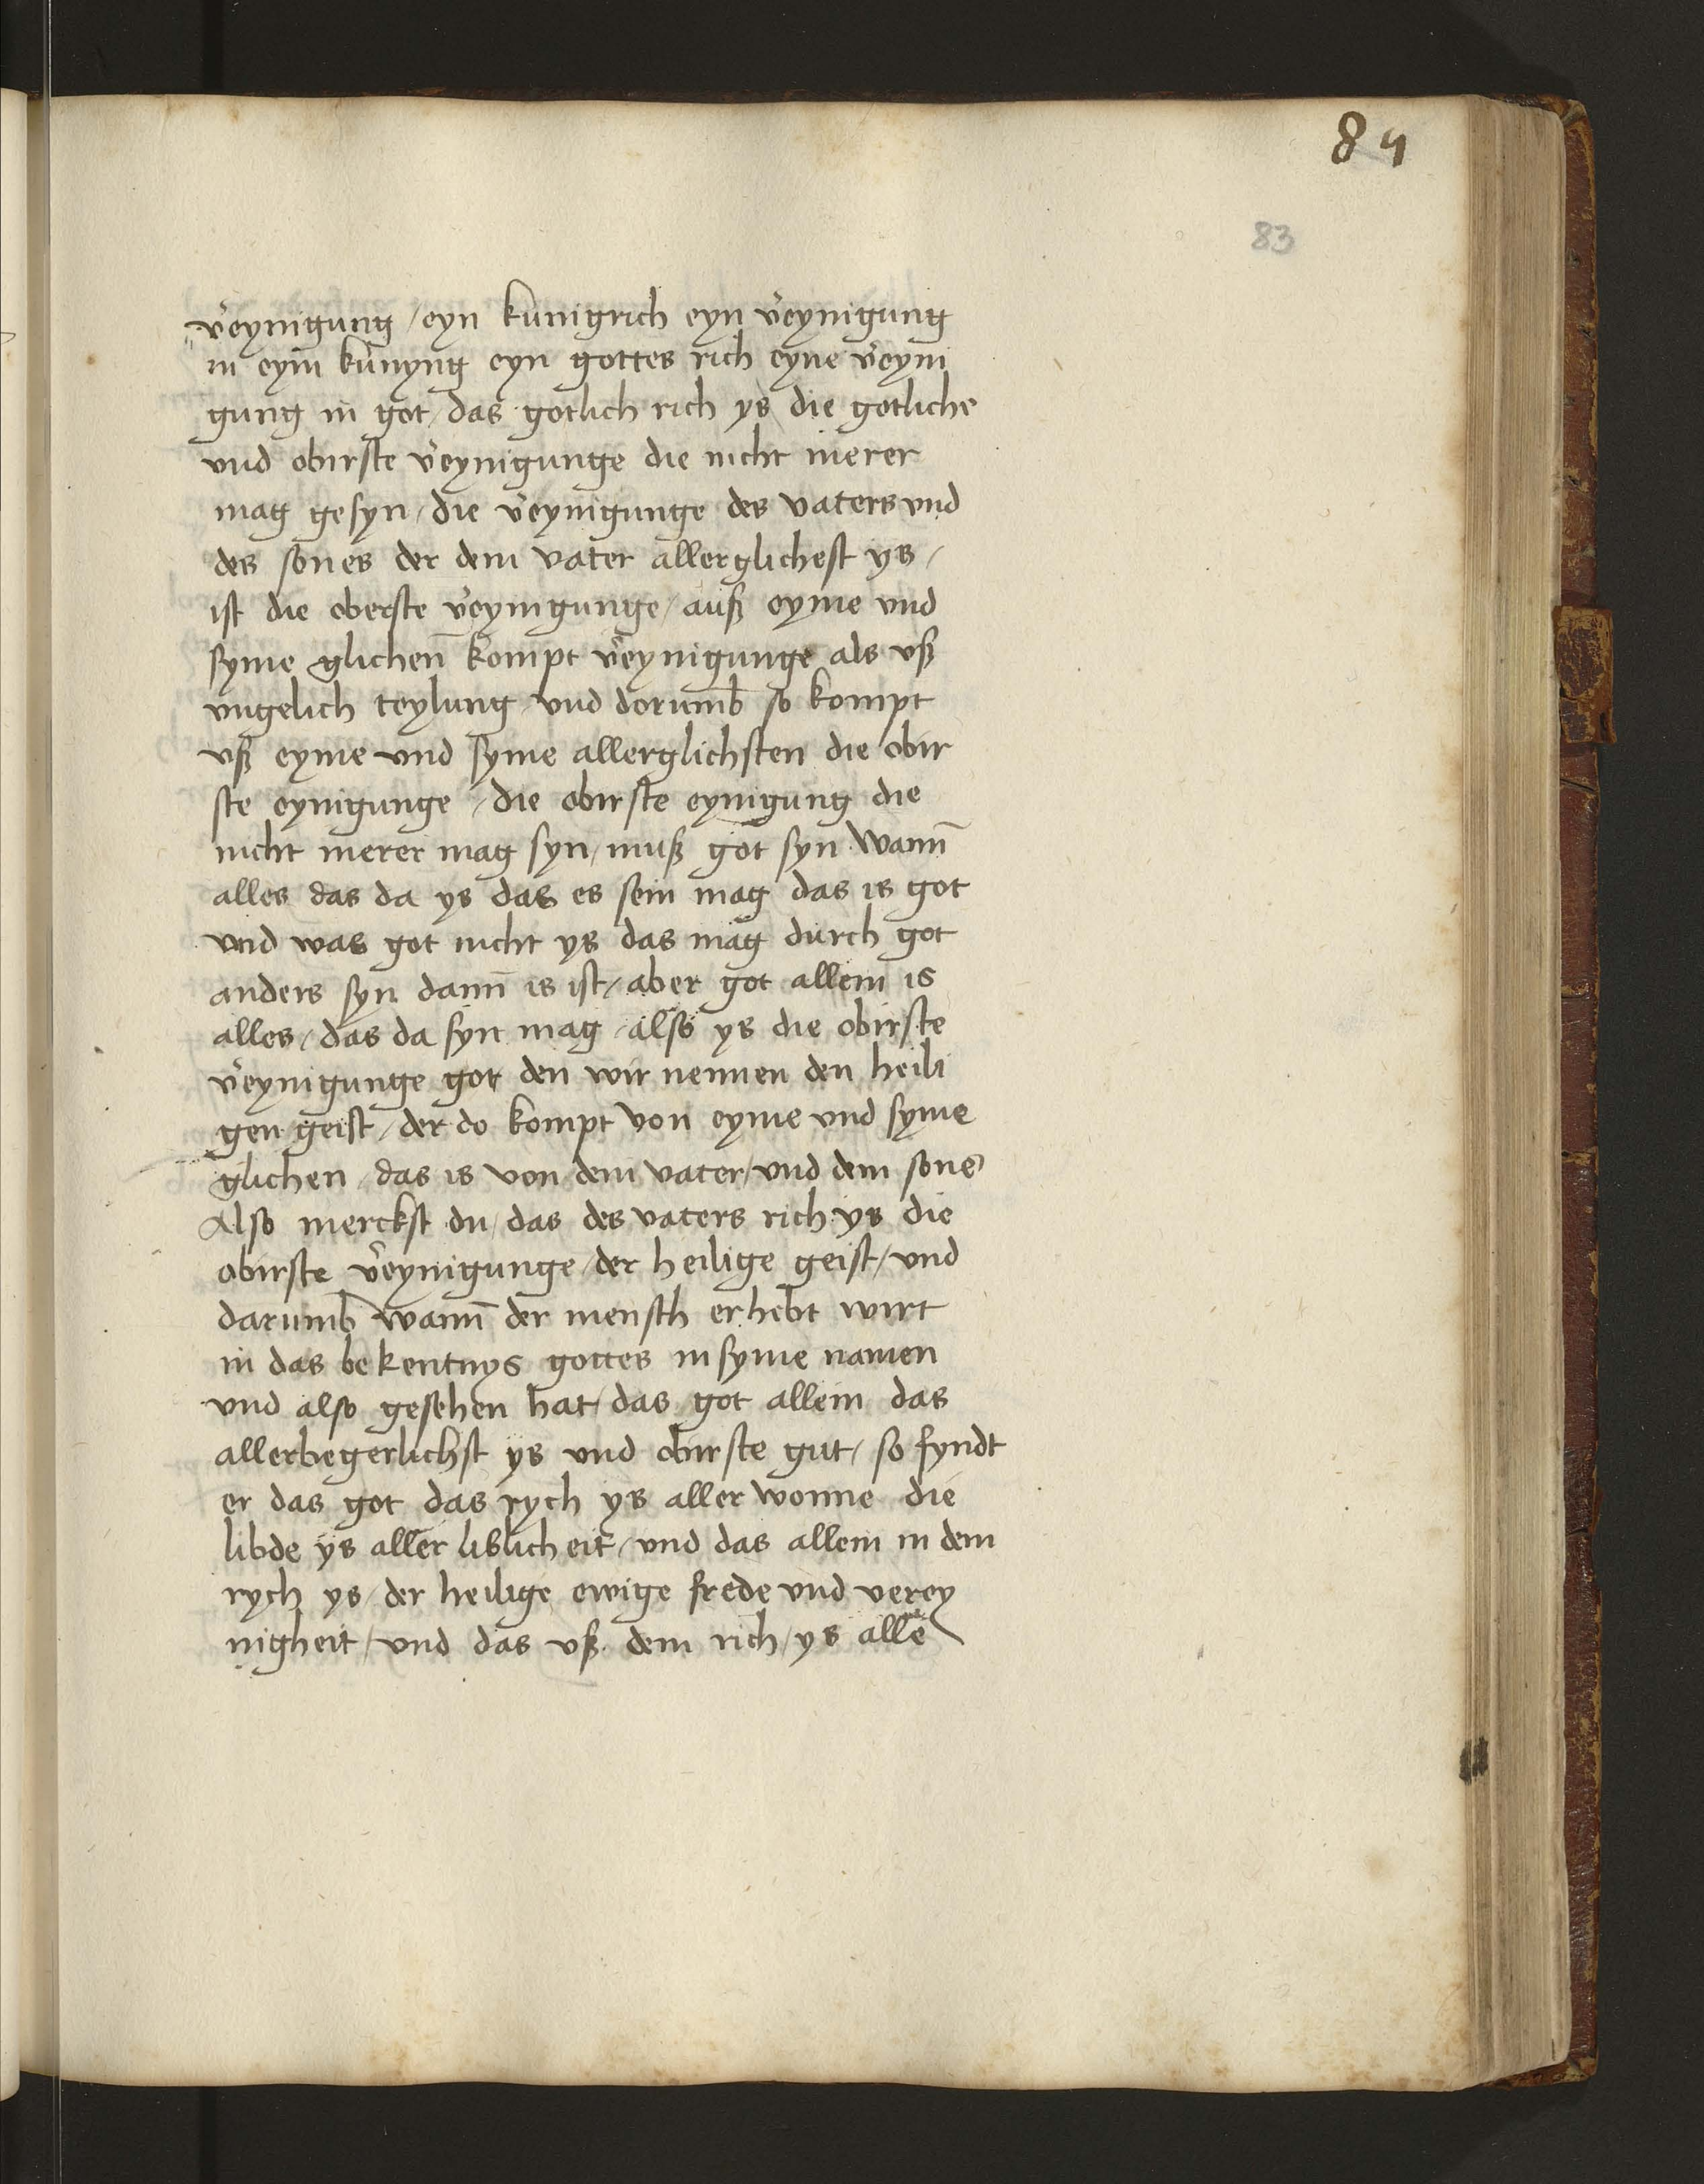 84
83
v̄eynigung / eyn kunigrich eyn v̄eynigung
in eym kunyng eyn gottes rich eyne v̄eyni
gung in got / das gotlich rich ys die gotliche
vnd obirste v̄eynigunge die nicht merer
mag gesyn / die v̄eynigunge des vaters vnd
des sones der dem vater allerglichest ys /
ist die oberste v̄eynigunge / auß eyme vnd
syme glichen̄ kompt v̄eynigunge als vß
vngelich teylung vnd dorumb so kompt
vß eyme vnd syme allerglichsten die obir
ste eynigunge / die obirste eynigung die
nicht merer mag syn / muß got syn wann̄
alles das da ys das es sein mag das is got
vnd was got nicht ys das mag durch got
anders syn dann̄ is ist / aber got allein is
alles / das da syn mag / also ys die obirste
v̄eynigunge got den wir nennen den heili
gen geist / der do kompt von eyme vnd syme
glichen / das is von dem vater / vnd dem sone
Also merckst du / das des vaters rich ys die
obirste v̄eynigunge / der heilige geist / vnd
darumb wann̄ der mensch erhebt wirt
in das bekentnys gottes in syme namen
vnd also gesehen hat / das got allein das
allerbegerlichst ys vnd obirste gut / so fyndt
er das got das rych ys aller wonne die
libde ys aller liblicheit / vnd das allein in dem
rych ys / der heilige ewige frede vnd verey
nigheit / vnd das vß dem rich / ys alle